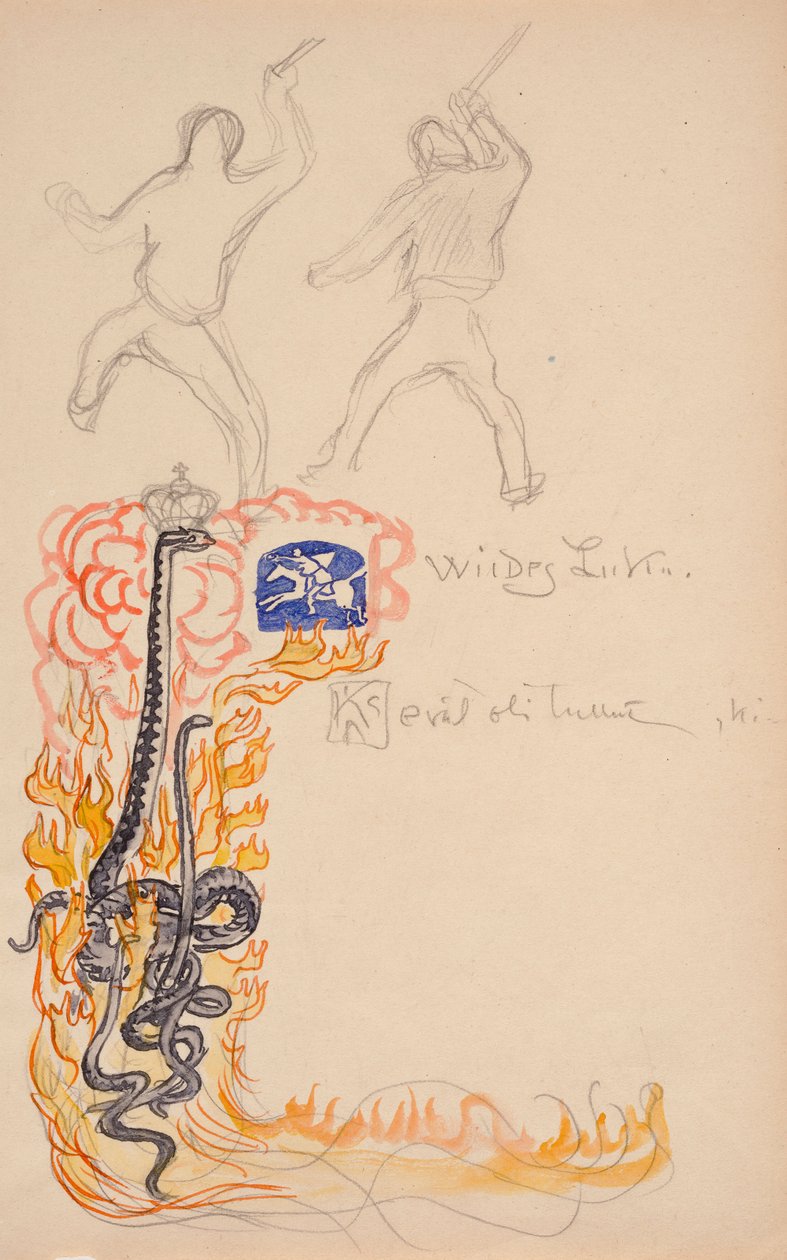 WiiDes Luku.
Kevät oli tullut , ki-